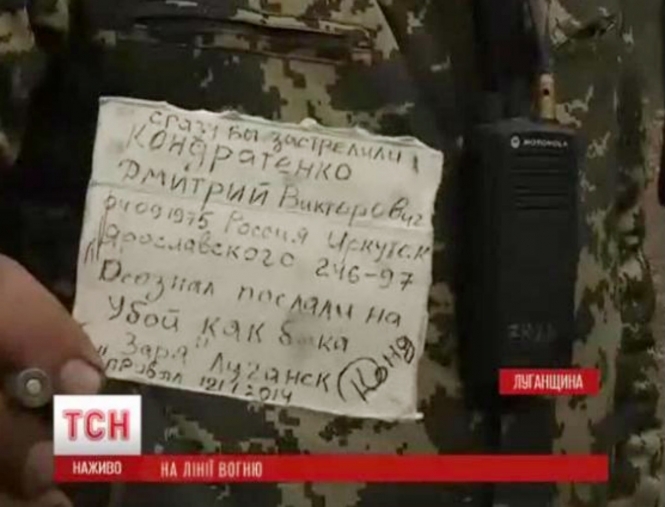 сразу бы застрелили
Кондратенко
Дмитрий Викторович
04091975 Россия Иркутск
Ярославского 246-97
Осознал послали на
Убой как б ка
"Заря" Луганск
Прибл 121 2014
Коня
MOTOROLA
ЛУГАНЩИНА
ТСН
НАЖИВО
НА ЛІНІЇ ВОГНЮ